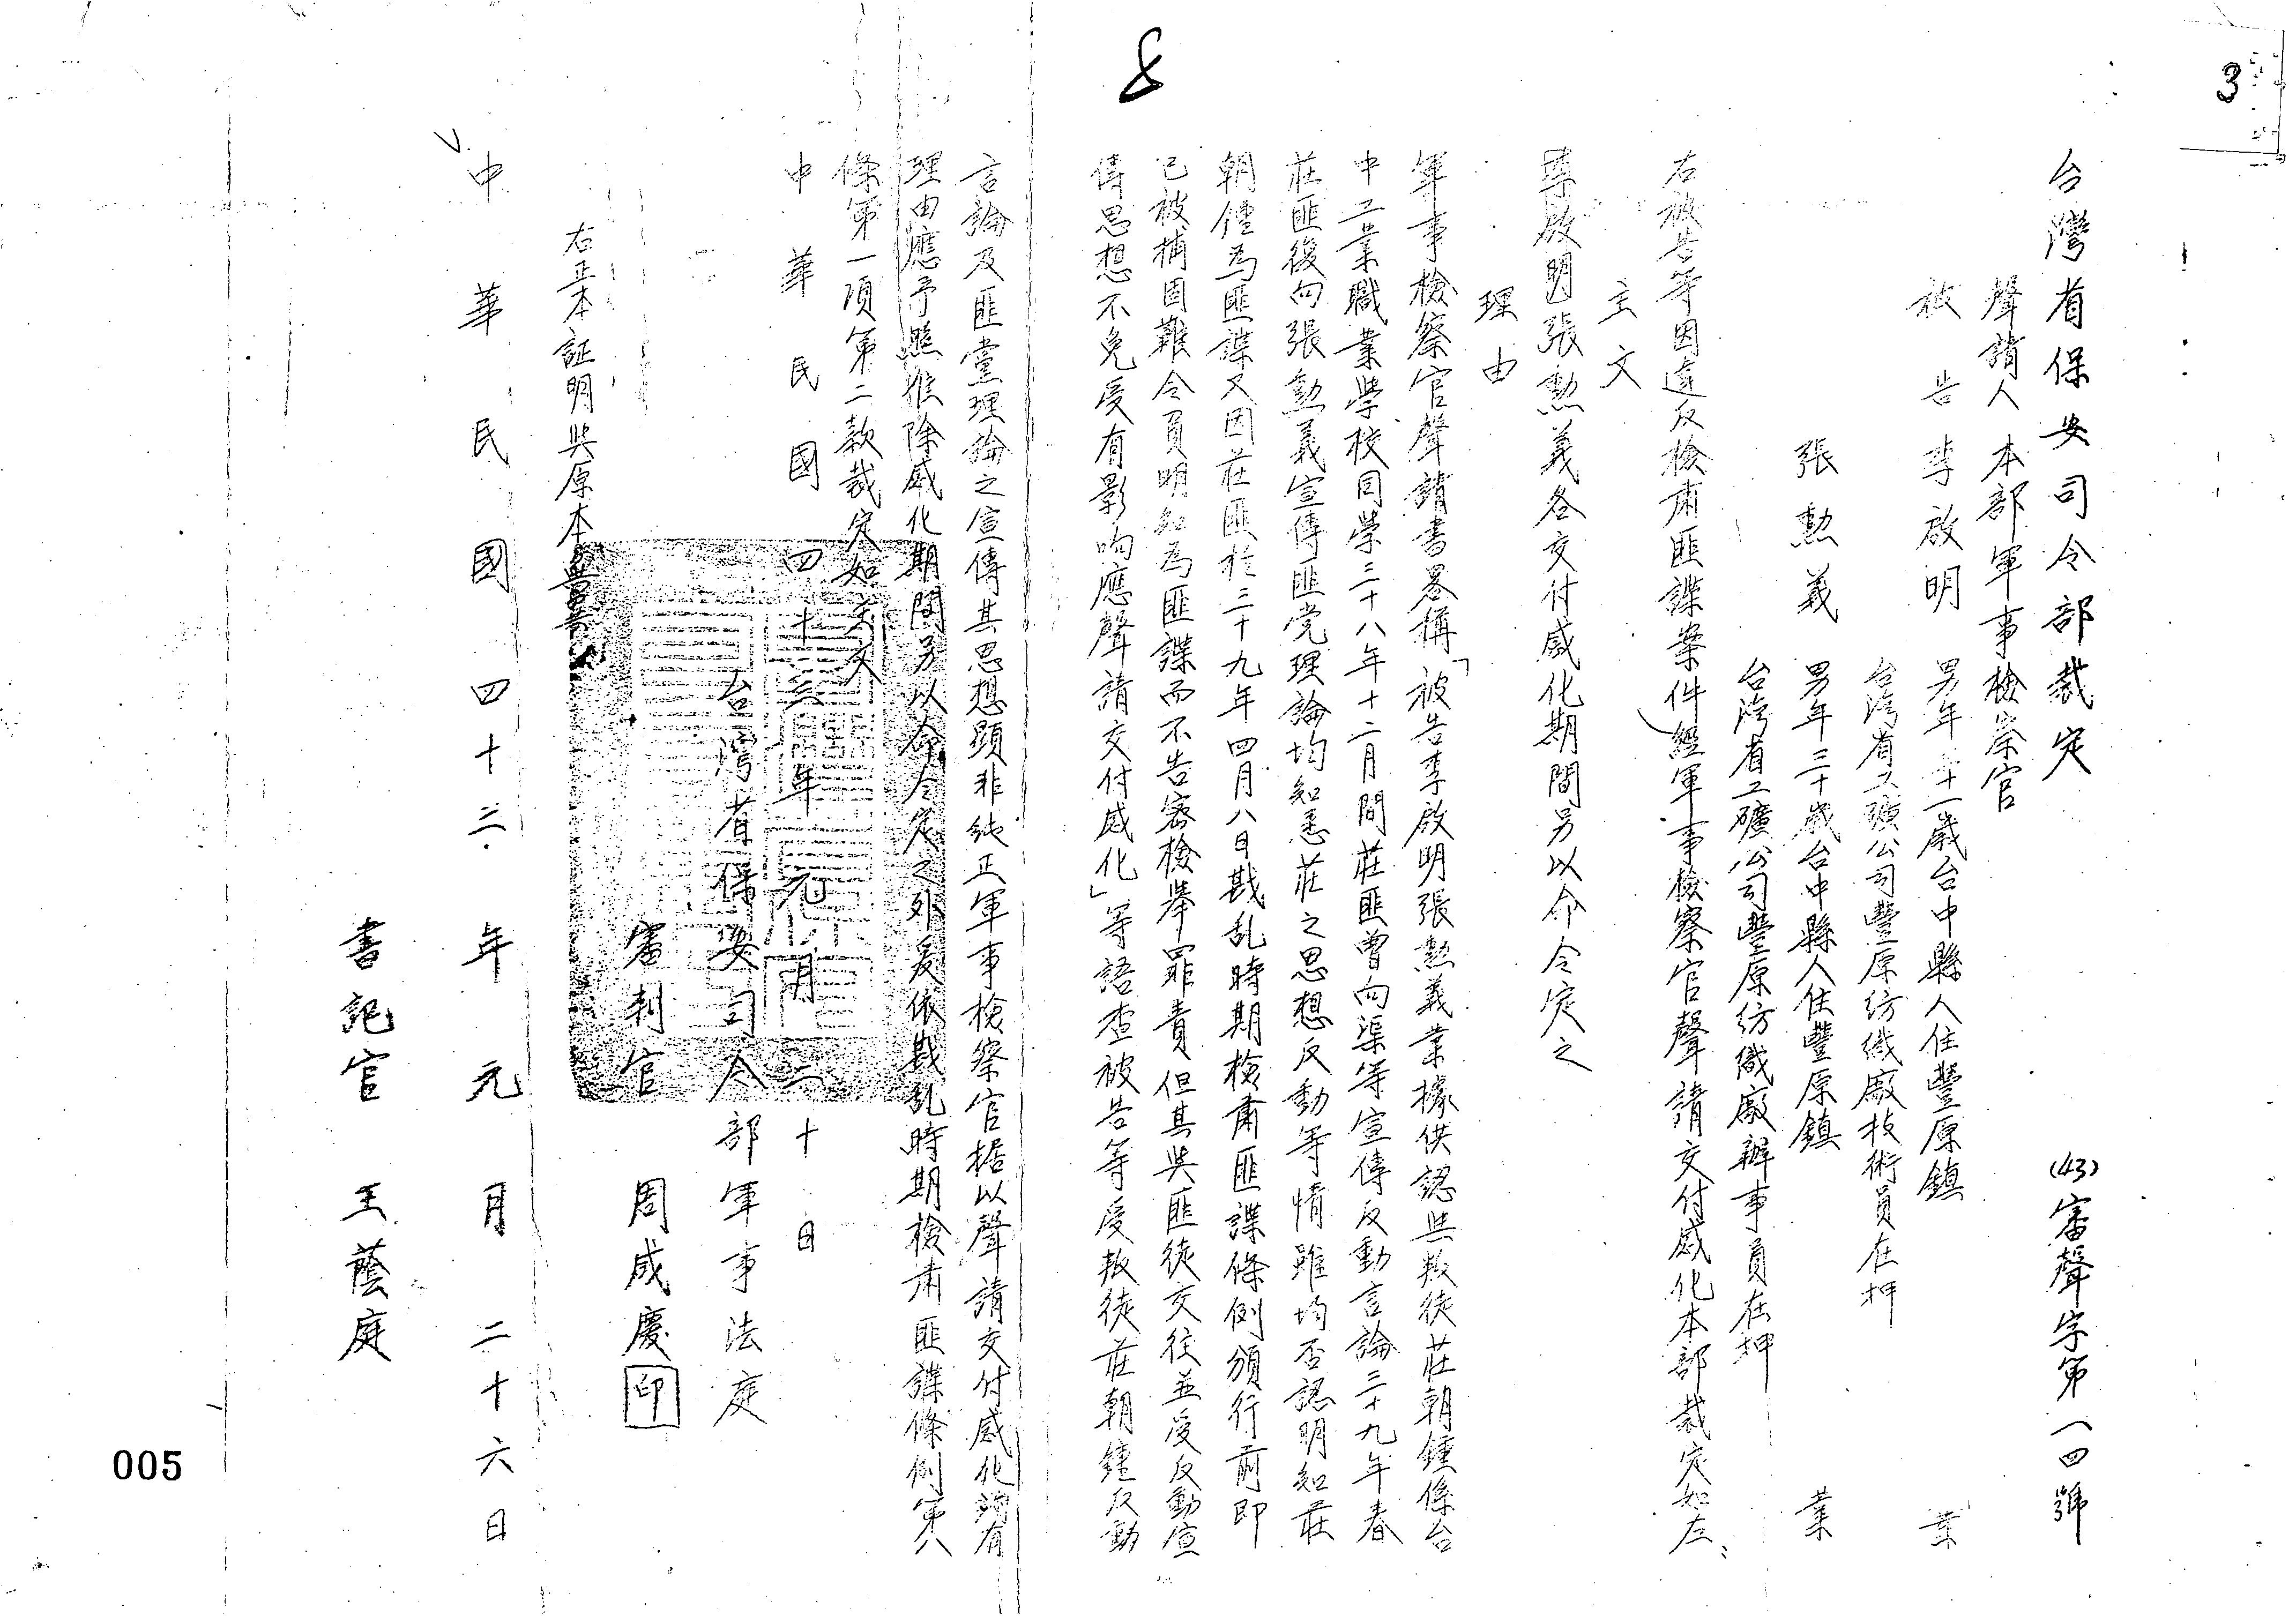 3
8
台灣省保安司令部裁定
(43)審聲字第一四號
聲請人 本部軍事檢察官
被告 李啟明 男年三十一歲台中縣人住豐原鎮 業
台灣省工礦公司豐原紡織廠技術員在押
張勲義 男年三十歲台中縣人住豐原鎮 業
台灣省工礦公司豐原紡織廠辦事員在押
右被告等因違反檢肅匪諜案件經軍事檢察官聲請交付感化本部裁定如左:
主文
李啟明張勲義各交付感化期間另以命令定之
理由
軍事檢察官聲請書畧稱「被告李啟明張勲義業據供認與叛徒莊朝鍾係台
中工業職業學校同學三十八年十二月間莊匪曾向渠等宣傳反動言論三十九年春
莊匪復向張勲義宣傳匪党理論均知悉莊之思想反動等情雖均否認明知莊
朝鍾為匪諜又因莊匪於三十九年四月八日戡乱時期檢肅匪諜條例頒行前即
已被捕固難令負明知為匪諜而不告密檢舉罪責但其與匪徒交往並受反動宣
傳思想不免受有影响應聲請交付感化」等語查被告等受叛徒莊朝鍾反動
言論及匪黨理論之宣傳其思想顯非純正軍事檢察官据以聲請交付感化詢有
理由應予照准除感化期間另以命令定之外爰依戡乱時期檢肅匪諜條例第八
條第一項第二款裁定如主文
中華民國四十三年元月二十日
台灣省保安司令部軍事法庭
審判官 周咸慶 印
右正本証明與原本無異
中華民國四十三年元月二十六日
書記官 王蔭庭
005